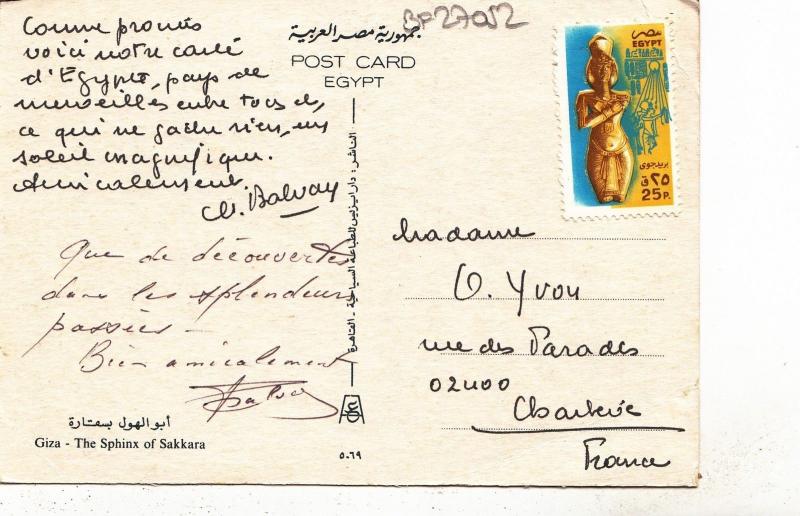 Comme promis
voici notre carte
d'Egypte, pays de
merveilles entre tous et,
ce qui ne gache rien, un
soleil magnifique.
Amicalement.
Ch. Balvay
Que de découvertes
dans les splendeurs
passées -
Bien amicalement
أبو الهول بسقارة
Giza - The Sphinx of Sakkara
جمهورية مصر العربية
POST CARD
EGYPT
الناشر: دار ايزيس للطباعة السياحية - القاهرة
٥٠٦٩
BF27052
مصر
EGYPT
بريد جوى
٢٥ ق
25 P.
Madame
O. Yvon
rue des Parades
02400
France